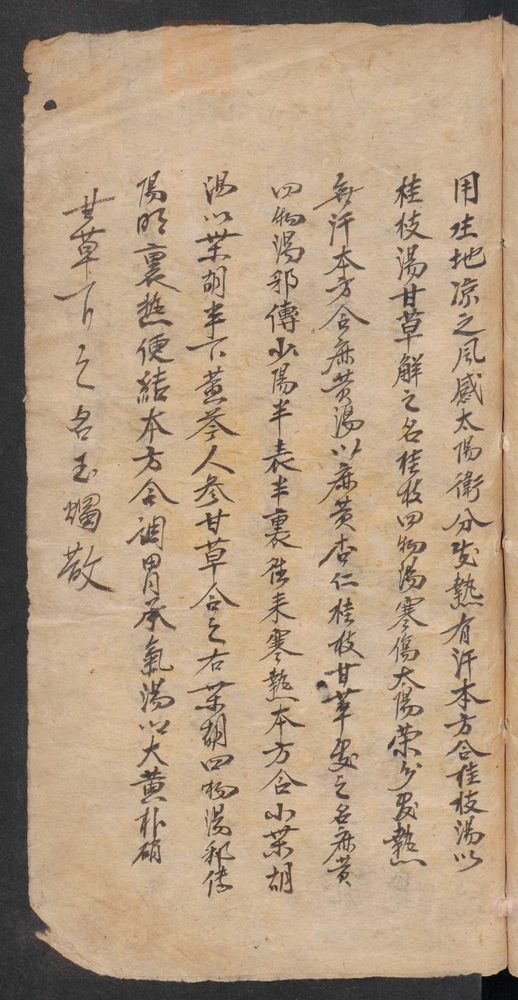 用生地凉之风感太陽衛分發熱有汗本方合桂枝湯以
桂枝湯甘草解之名桂枝四物湯寒傷太陽荣分發熱
無汗本方合麻黄湯以麻黄杏仁桂枝甘草發之名麻黄
四物湯邪傳少陽半表半裏往来寒熱本方合小柴胡
湯以柴胡半下黄芩人参甘草合之右柴胡四物湯邪傳
陽明裏熱便結本方合調胃承氣湯以大黄朴硝
甘草下之名玉燭散